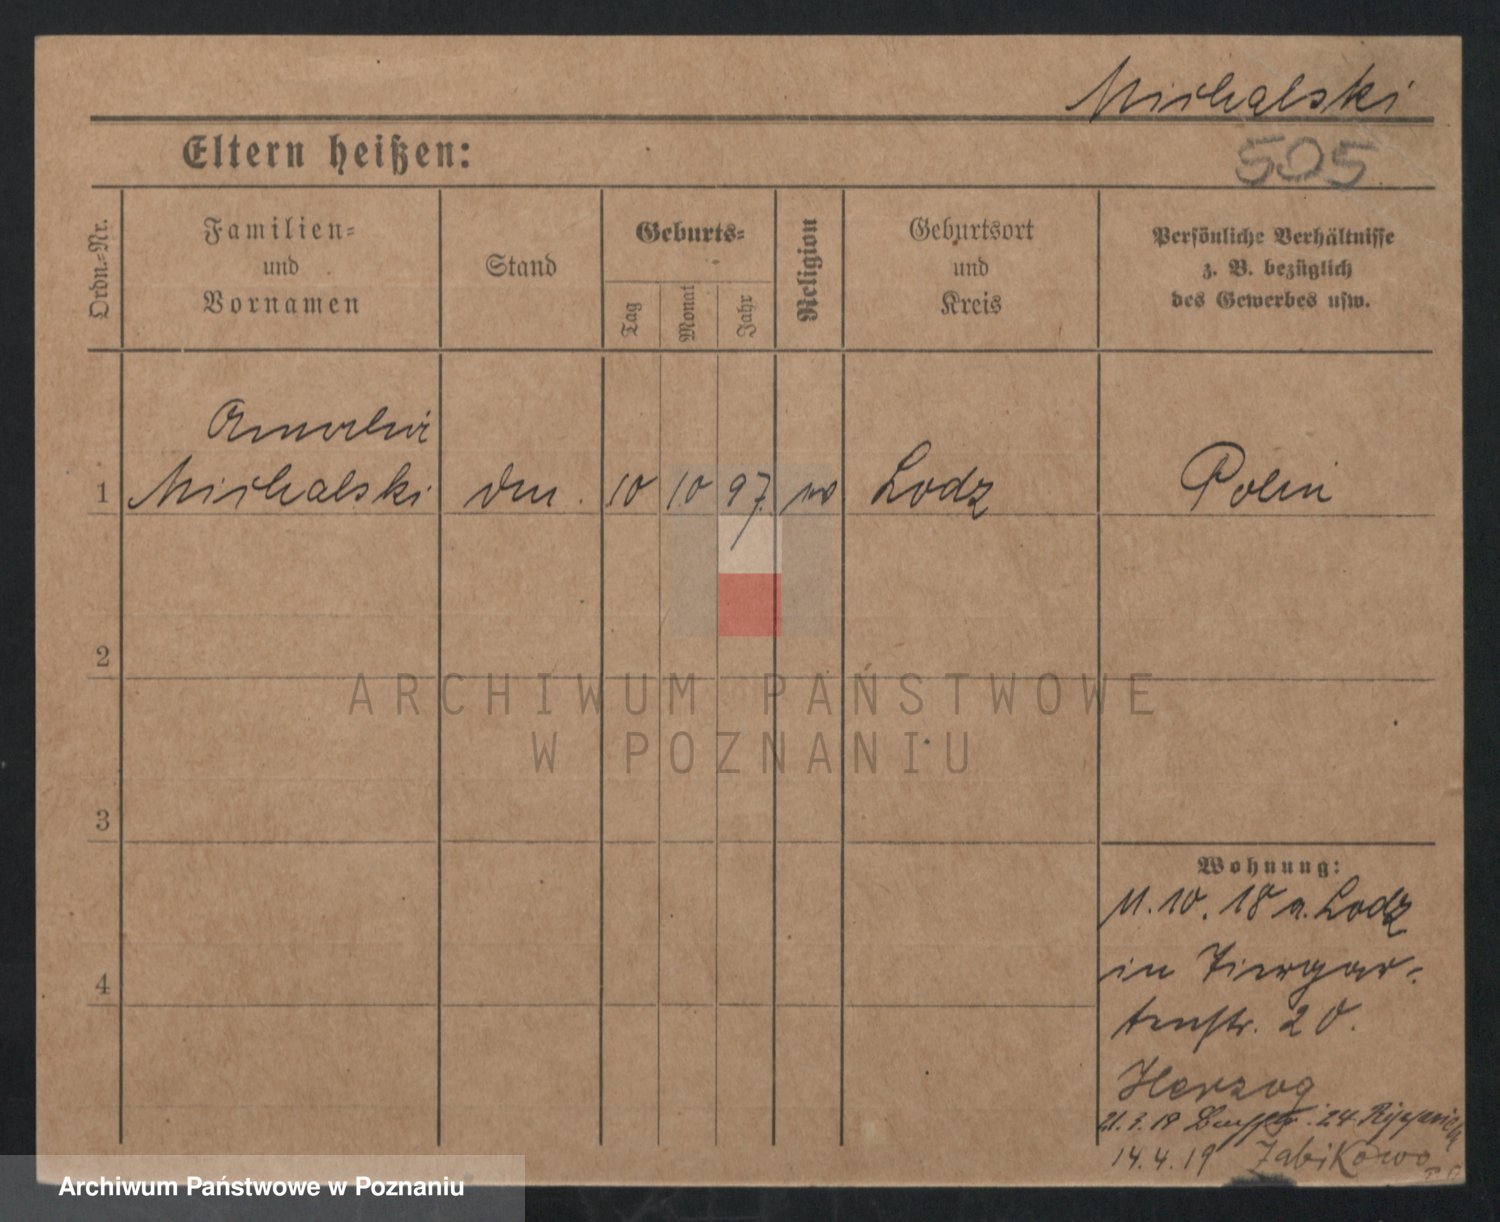 Michalski
Eltern heißen:
505
Ordn.-Nr.
Familien-
und
Vornamen
Stand
Geburts-
Tag
Monat
Jahr
Religion
Geburtsort
und
Kreis
Persönliche Verhältnisse
z. B. bezüglich
des Gewerbes usw.
1
Michalski
10
10
97.
Lodz
Polin
2
ARCHIWUM PAŃSTWOWE
W POZNANIU
3
Wohnung:
11. 10. 18 a. Lodz
4
in Tiergar-
tenstr. 20.
Herzog
21. 3. 19
24
14. 4. 19 Zabikowo
Archiwum Państwowe w Poznaniu